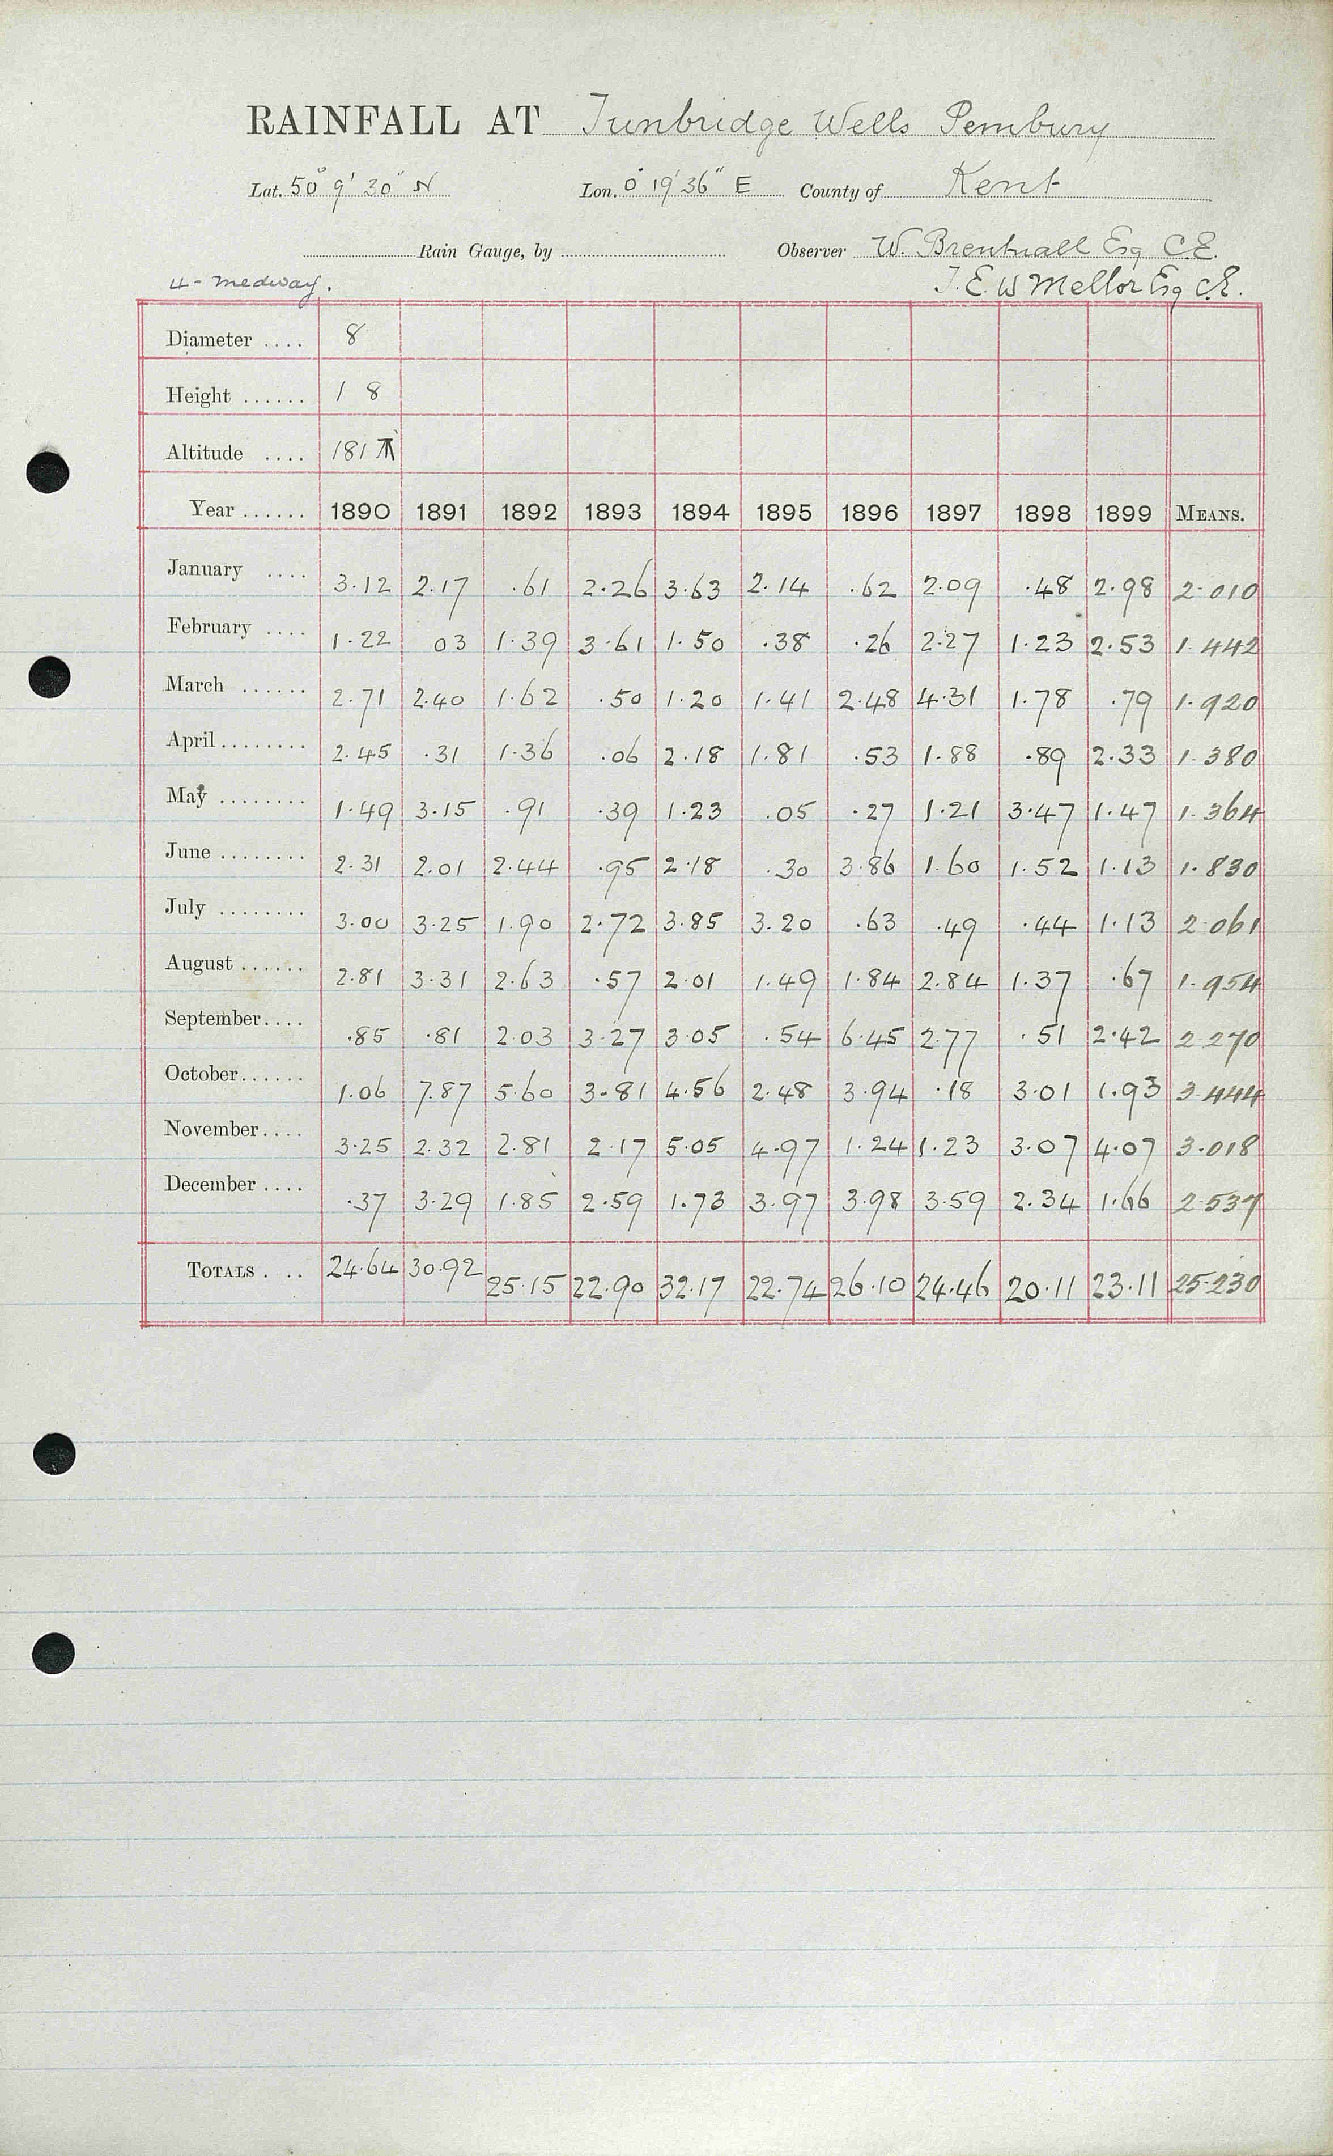 RAINFALL AT Tunbridge Wells Pembury
Lat. 50° 9' 30" N Lon. 0° 19' 36" E County of Kent
Rain Gauge, by Observer W. Brentnall Esq C.E.
4 - Medway. J. E. W Mellor Esq C.E.
Diameter .... 8
Height ...... 1 8
Altitude .... 181
Year ...... 1890 1891 1892 1893 1894 1895 1896 1897 1898 1899 MEANS.
January .... 3.12 2.17 .61 2.26 3.63 2.14 .62 2.09 .48 2.98 2.010
February .... 1.22 03 1.39 3.61 1.50 .38 .26 2.27 1.23 2.53 1.442
March ...... 2.71 2.40 1.62 .50 1.20 1.41 2.48 4.31 1.78 .79 1.920
April ........ 2.45 .31 1.36 .06 2.18 1.81 .53 1.88 .89 2.33 1.380
May ........ 1.49 3.15 .91 .39 1.23 .05 .27 1.21 3.47 1.47 1.364
June ........ 2.31 2.01 2.44 .95 2.18 .30 3.86 1.60 1.52 1.13 1.830
July ........ 3.00 3.25 1.90 2.72 3.85 3.20 .63 .49 .44 1.13 2.061
August ...... 2.81 3.31 2.63 .57 2.01 1.49 1.84 2.84 1.37 .67 1.954
September.... .85 .81 2.03 3.27 3.05 .54 6.45 2.77 .51 2.42 2.270
October...... 1.06 7.87 5.60 3.81 4.56 2.48 3.94 .18 3.01 1.93 3.444
November.... 3.25 2.32 2.81 2.17 5.05 4.97 1.24 1.23 3.07 4.07 3.018
December .... .37 3.29 1.85 2.59 1.73 3.97 3.98 3.59 2.34 1.66 2.537
TOTALS . .. 24.64 30.92 25.15 22.90 32.17 22.74 26.10 24.46 20.11 23.11 25.230